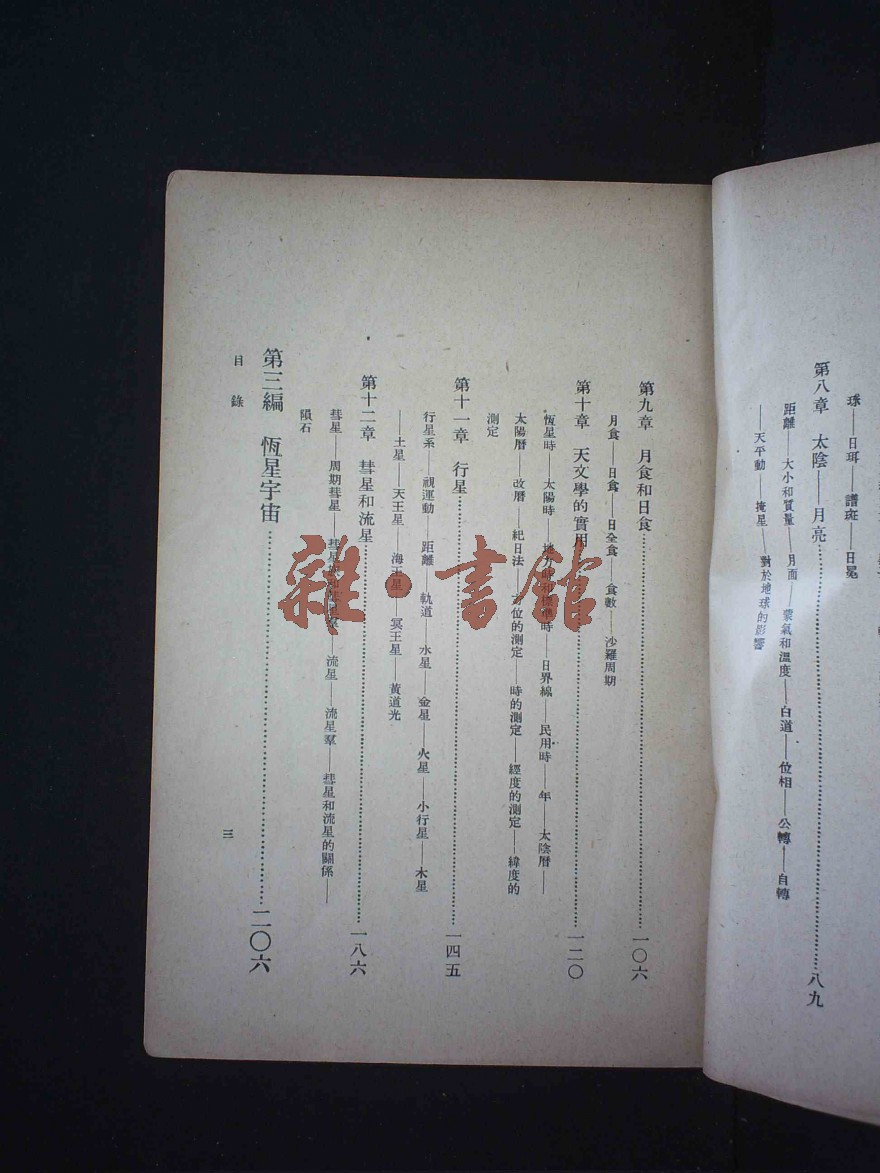 球——日珥——譜斑——日冕
第八章 太陰——月亮……八九
距離——大小和質量——月面——蒙氣和溫度——白道——位相——公轉——自轉
——天平動——掩星——對於地球的影響
第九章 月食和日食……一〇六
月食——日食——日全食——食數——沙羅周期
第十章 天文學的實用……一二〇
恆星時——太陽時——地方時和標準時——日界線——民用時——年——太陰曆——
太陽曆——改曆——紀日法——方位的測定——時的測定——經度的測定——緯度的
測定
第十一章 行星……一四五
行星系——視運動——距離——軌道——水星——金星——火星——小行星——木星
——土星——天王星——海王星——冥王星——黃道光
第十二章 彗星和流星……一八六
彗星——周期彗星——彗星——流星——流星羣——彗星和流星的關係——
隕石
第三編 恆星宇宙……二〇六
目錄
三
雜·書館